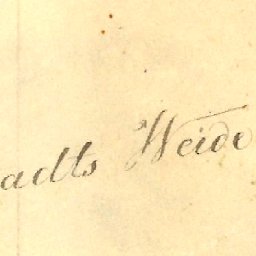 adts Weide